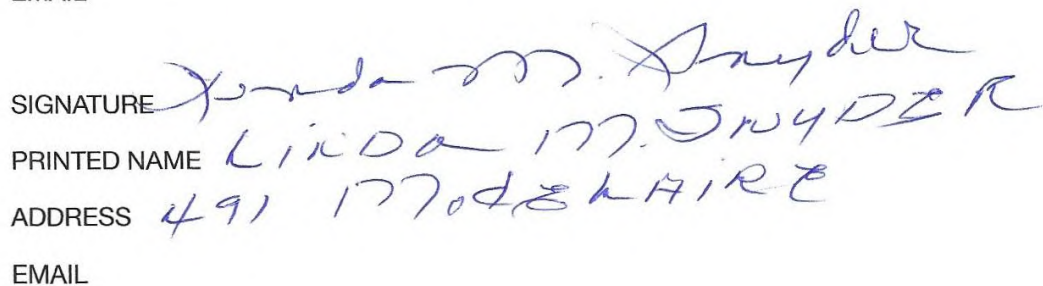 EMAIL
SIGNATURE Linda M. Snyder
PRINTED NAME LINDA M. SNYDER
ADDRESS 491 MODELAIRE
EMAIL